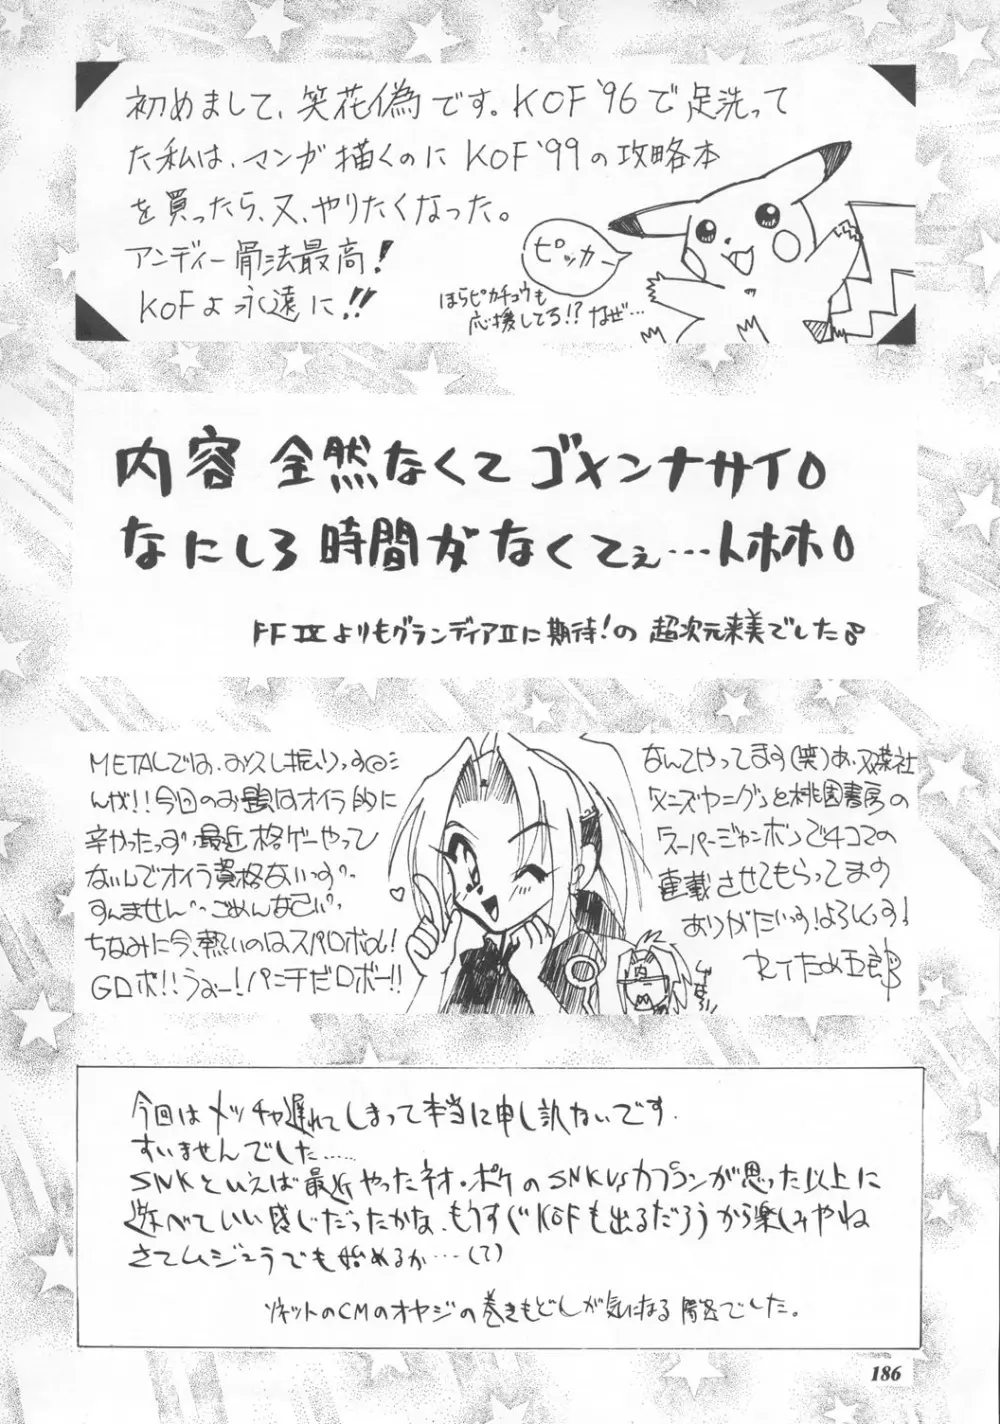 初めまして、笑花偽です。KOF'96で足洗って
た私は、マンガ描くのにKOF'99の攻略本
を買ったら、又、やりたくなった。
アンディー骨法最高!
KOFよ永遠に!!
ピッカー
ほらピカチュウも
応援してる!?なぜ…
内容 全然なくてゴメンナサイ。
なにしろ時間がなくてぇ…トホホ。
FFⅨよりもグランディアⅡに期待!の 超次元来美でした
METALでは、おひさし振りっす
んが!!今回のお題はオイラ的に
辛かったっす 最近格ゲーやって
ないんでオイラ資格ないっす
すんません ごめんなさい
ちなみに今、熱いのはスパロボα!
Gロボ!!うぉー!パンチだロボー!!
なんてやってます(笑)あ、双葉社
メンズヤングと桃園書房の
スーパージャンボンで4コマの
連載させてもらってます
ありがたいっす!よろしくっす!
内
今回はメッチャ遅れてしまって本当に申し訳ないです.
すいませんでした……
SNKといえば最近やったネオ・ポケのSNKVSカプコンが思った以上に
遊べていい感じだったかな、もうすぐKOFも出るだろうから楽しみやね
さてムジュラでも始めるか…(7)
ソネットのCMのオヤジの巻きもどしが気になる
でした。
186